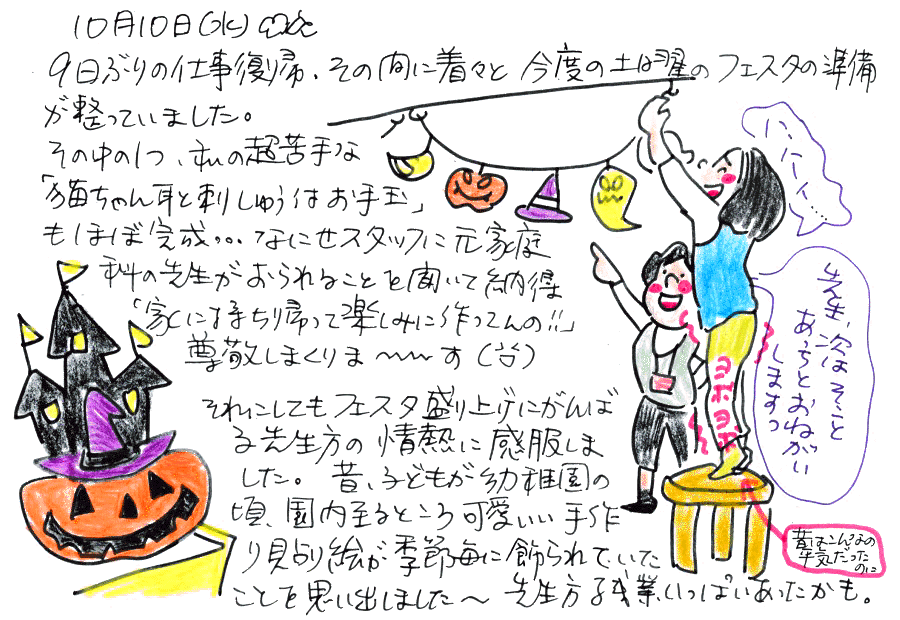 10月10日(水)
9日ぶりの仕事復帰、その間に着々と今度の土日曜のフェスタの準備
が整っていました。
その中の1つ、私の超苦手な
「猫ちゃん耳と刺しゅう付お手玉」
もほぼ完成... なにせスタッフに元家庭
科の先生がおられることを聞いて納得
「家に持ち帰って楽しみに作ってんの!!」
尊敬しまくりま〜〜す(笑)
それにしてもフェスタ盛り上げにがんば
る先生方の情熱に感服しま
した。昔、子どもが幼稚園の
頃、園内至るところ可愛いい手作
り貝占り絵が季節毎に飾られていた
ことを思い出しました〜 先生方残業いっぱいあったかも。
ハ、ハーイ...
先生、次はそこと
あっちとおねがい
しますっ
ヨボヨボ
昔はこんなの
平気だった
のに